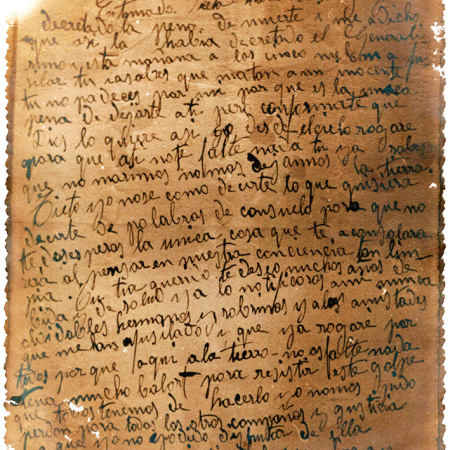 decretado la pena de muerte y me a Dicho
que asi la habia decretado el Generali
simo y esta mañana a las cinco
silar tu ia sabes que matan a un inocente
tu no padeces por mi por que es la unica
pena de dejarte a ti pero conformate que
Dios lo quiere asi yo desde el cielo rogare
para que a ti no te falte nada tu ya sabes
que no marimos nomos la tierra
Tieto yo no se como decirte lo que quisiera
decirte de palabras de consuelo para que no
te deseperes la unica cosa que te aconsolara
sera al pensar en nuestra conciencia tan lim
pia tia querido te deseo muchos años de
bida y de salud y ya lo notificaras a mi nunca
olvidables hermanos y sobrinos y a las amistades
que me han fusilado y que ya rogare por
todos por que aqui a la tierra no os falte nada
tener mucho balor para resistir este golpe
que todos tenemos de hacerlo y o nomos pido
perdon para todos los otros compañeros y gusticia
que yo no e podido disfrutar de ella